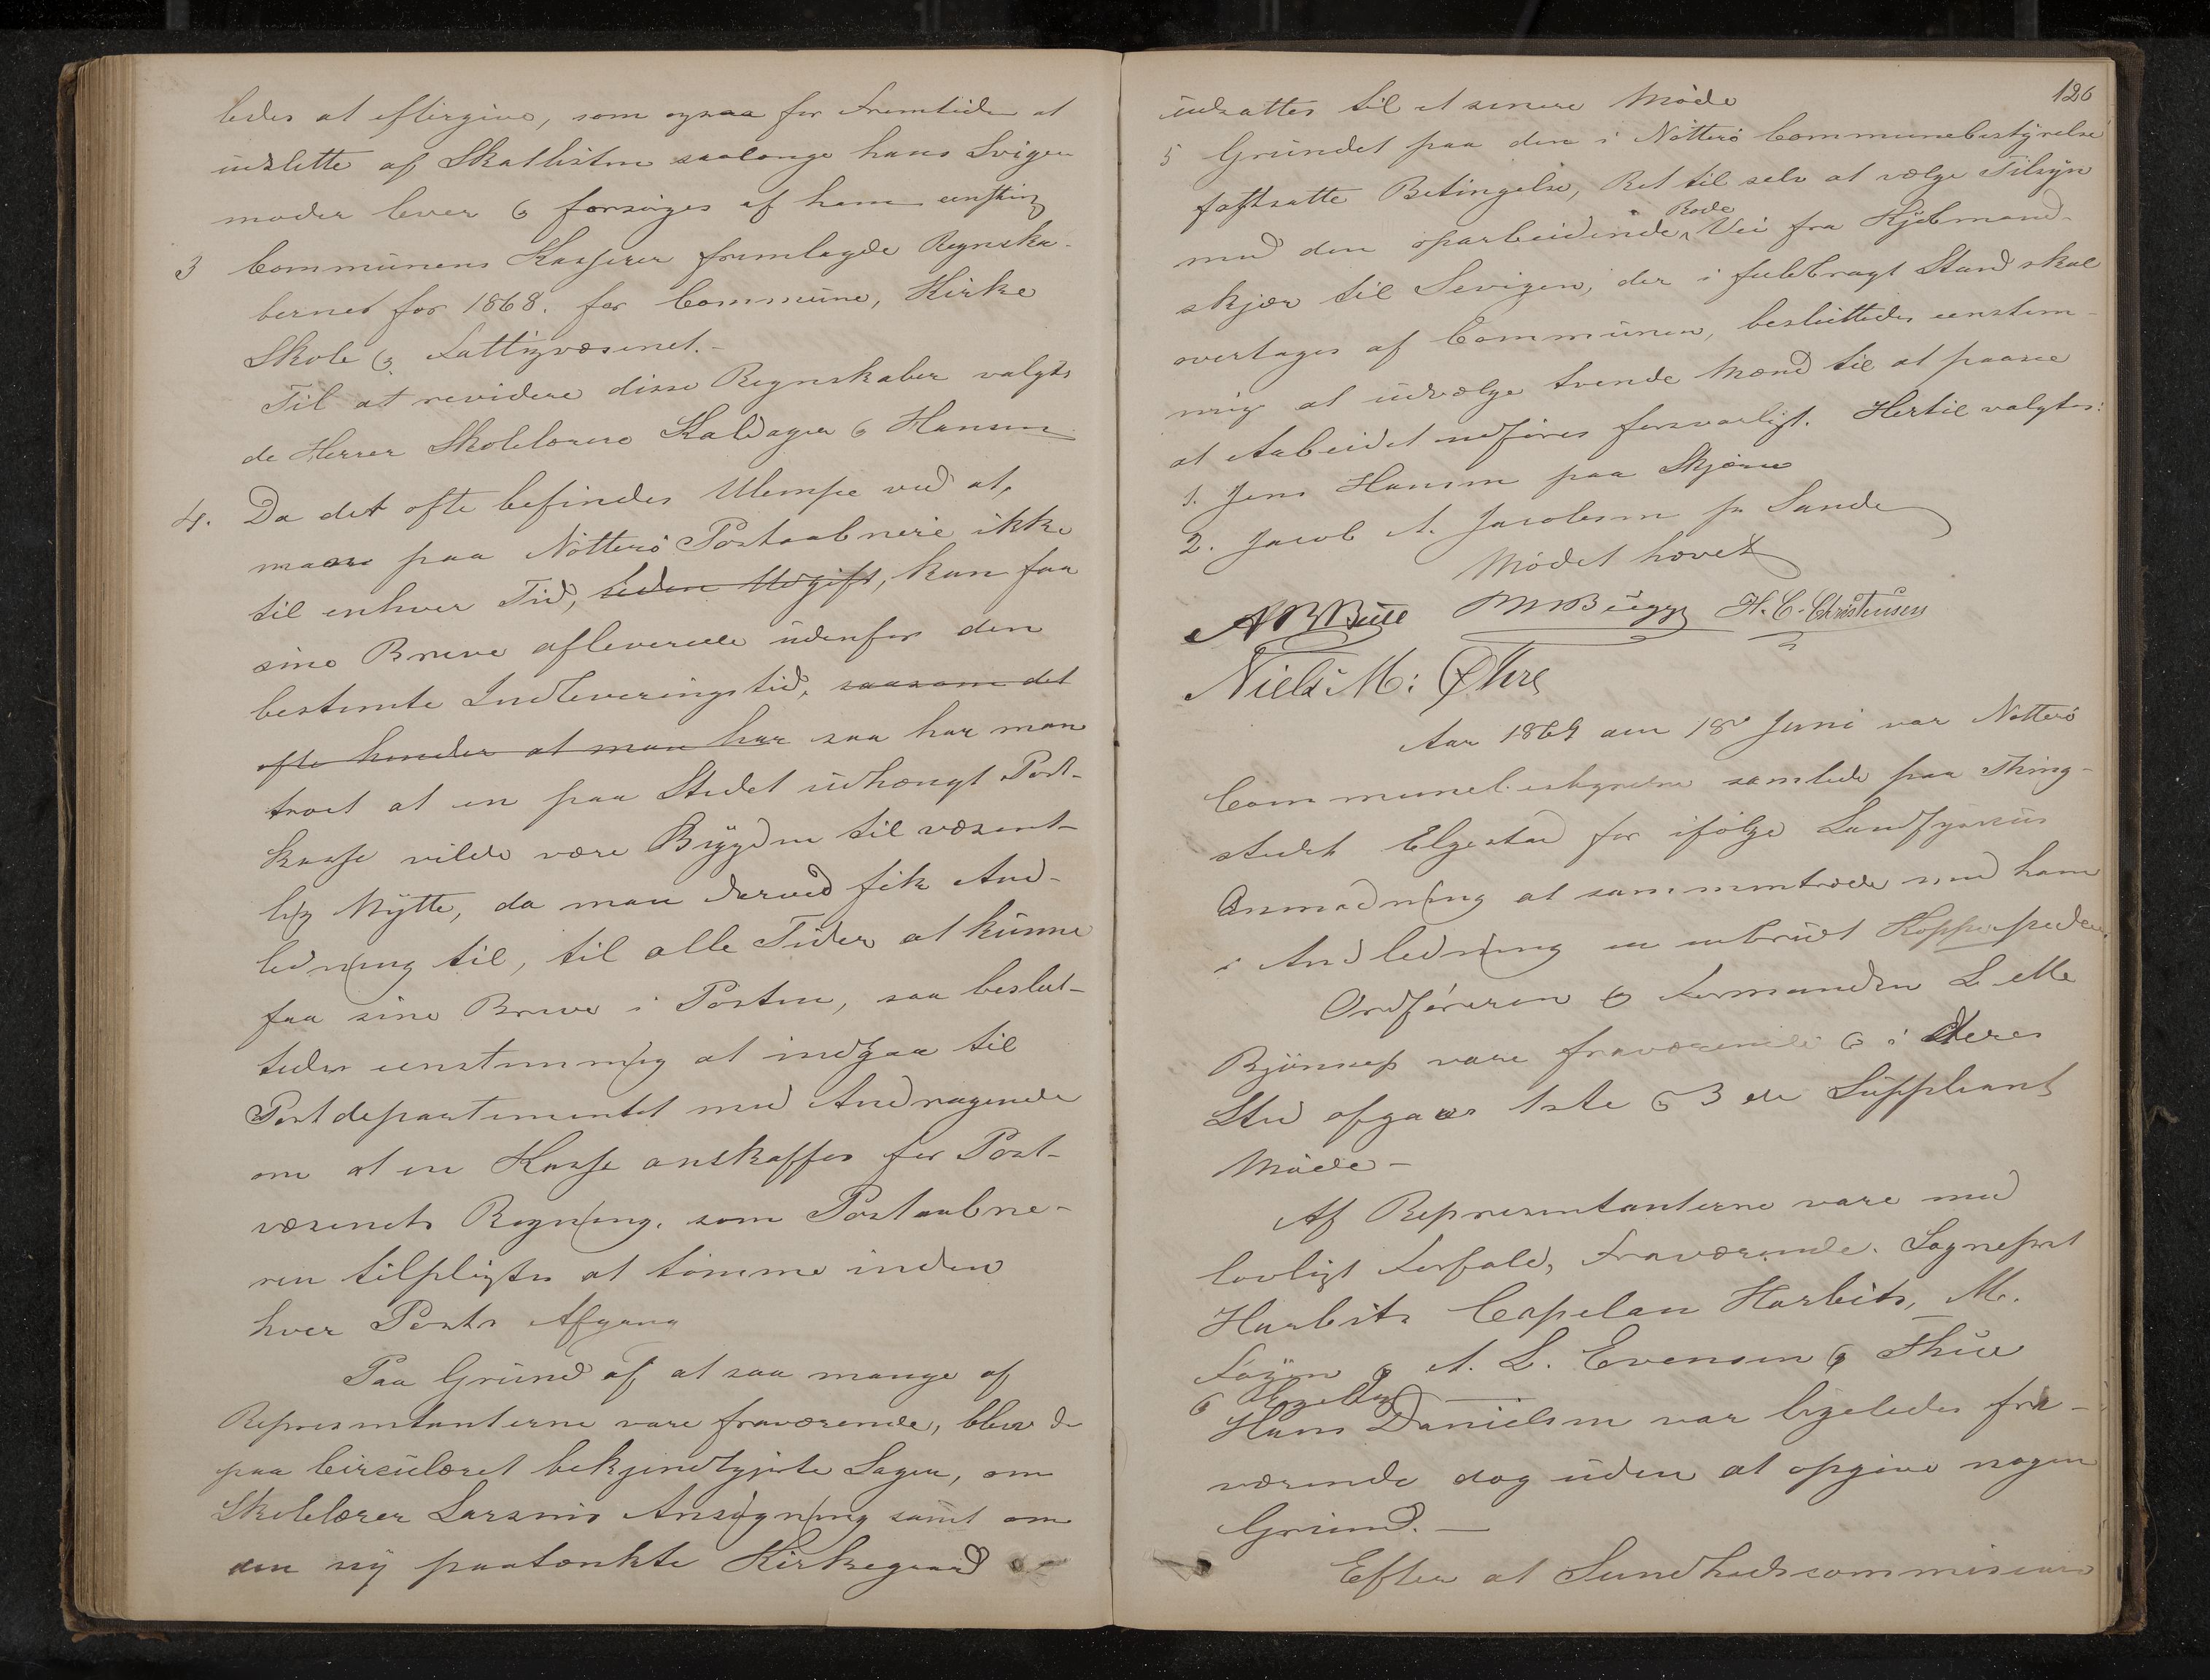 ledes at eftergive, som ogsaa for Fremtiden at
udslette af Skatlisten saalænge hans Sviger
moder lever & forsørges af ham
3 Communens Kasserer fremlagde Regnska-
berne for 1868. for Commune, Kirke
Skole & Fattigvæsenet.-
Til at revidere disse Regnskaber valgtes
de Herrer Skolelærere Kaldager & Hansen
4. Da det ofte befindes Ulempe ved at,
man paa Nøtterø Postaabneri ikke
til enhver Tid, uden Udgift, kan faa
sine Breve afleverede udenfor den
bestemte Indleveringstid, saasom det
ofte hender at man har saa har man
troet at en paa Stedet udhængt Post-
kasse vilde være Bygden til væsent-
lig Nytte, da man derved fik And-
ledning til, til alle Tider at kunne
faa sine Breve i Posten, saa beslut-
tedes eenstemmig at indgaa til
Postdepartementet med Andragende
om at en Kasse anskaffes for Post-
væsenets Regning, som Postaabne-
ren tilpligtes at tømme inden
hver Posts Afgang
Paa Grund af at saa mange af
Representanterne vare fraværende, blev de
paa Circulæret bekjendtgjorte Sager, om
Skolelærer Larsens Ansøgning samt om
den ny paatænkte Kirkegaard
126
udsattes til et senere Møde
5 Grundet paa den i Nøtterø Communebestyrelse
fastsatte Betingelse, Ret til selv at vælge Tilsyn
med den oparbeidende Rode Vei fra Kjøbmand-
skjær til Sevigen, der i fuldbragt Stand skal
overtages af Communen, besluttedes eenstem-
mig at udvælge tvende Mænd til at paasee
at Arbeidet udføres forsvarligt. Hertil valgtes:
1. Jens Hansen paa Skjærve
2. Jacob A. Jacobsen pa Sande
Mødet hævet
H. C. Christensen
Niels M: Øhre
Aar 1869 den 18de Juni var Nøtterø
Communebestyrelse samlede paa Thing-
stedet Elgestad for ifølge Landfysicus
Anmodning at sammentræde med ham
i Andledning en udbrudt Koppepedemi.
Ordføreren & Formanden L
vare fraværende & i deres
Sted 1ste & 3die Suppleant
Møde-
Af Representanterne vare med
lovligt Forfald, Fraværende. Sognepræst
Harbits Capelan Harbits, M.
Føyen & A. L. Evensen & Thue
&
Hans Danielsen var ligeledes fra-
værende dog uden at opgive nogen
Grund.—
Efter at Sundhedscommissionens